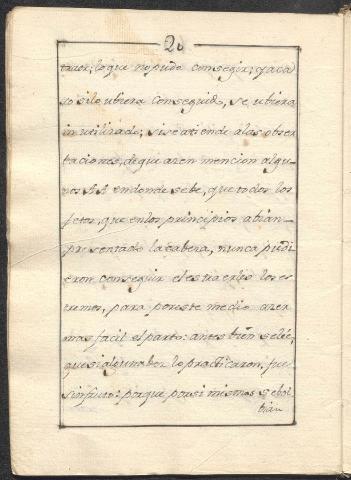 20
traer; lo que no pude conseguir; y aca
so si lo ubiera conseguido, se ubiera
inutilizado; si se atiende a las obser
taciones, de que azen mencion algu-
nos AA en donde se be, que todos los
fetos, que en los principios abian
presentado la cabeza, nunca pudi
eron conseguir el estraerles los es
tremos, para por este medio azer
mas facil el parto: antes bien se lée,
que si alguna bez lo practicaron, fue
sin fruto: porque por si mismos se bol
bian